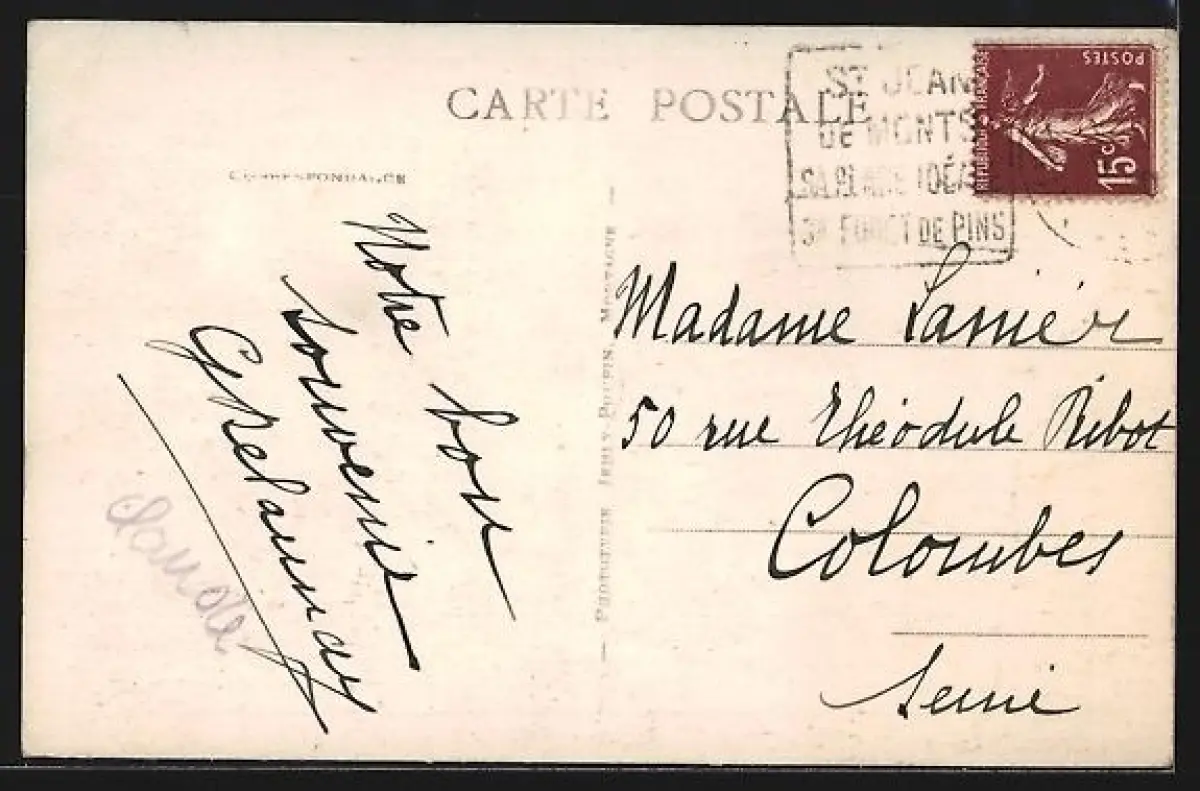 CARTE POSTALE
CORRESPONDANCE
ST JEAN
DE MONTS
SA PLAGE IDÉA
SA FORÊT DE PINS
POSTES
REPUBLIQUE FRANÇAISE
15c
Notre bon
souvenir
GDelaunay
Claude
PHOTOTYPIE JEHLY-POUPIN, MORTAGNE
Madame Lanier
50 rue Théodule Ribot
Colombes
Seine